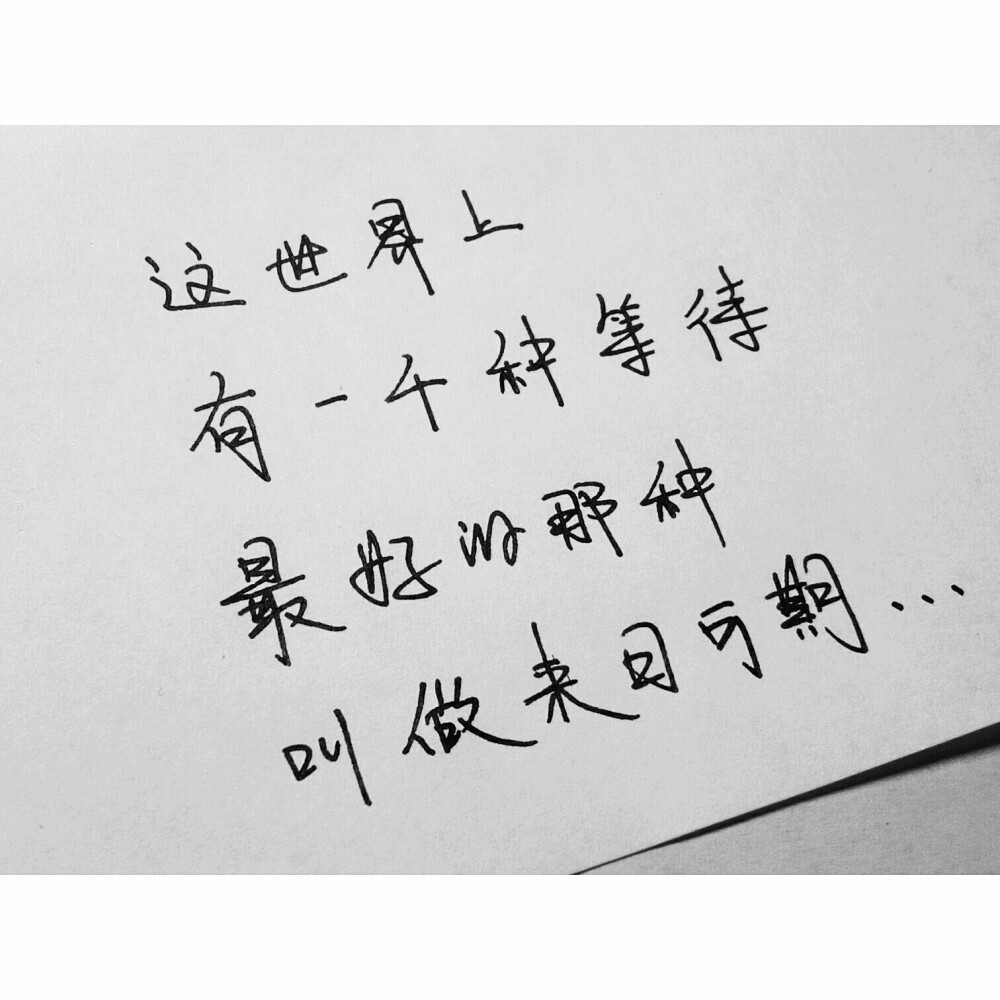 这世界上
有一千种等待
最好的那种
叫做来日可期...